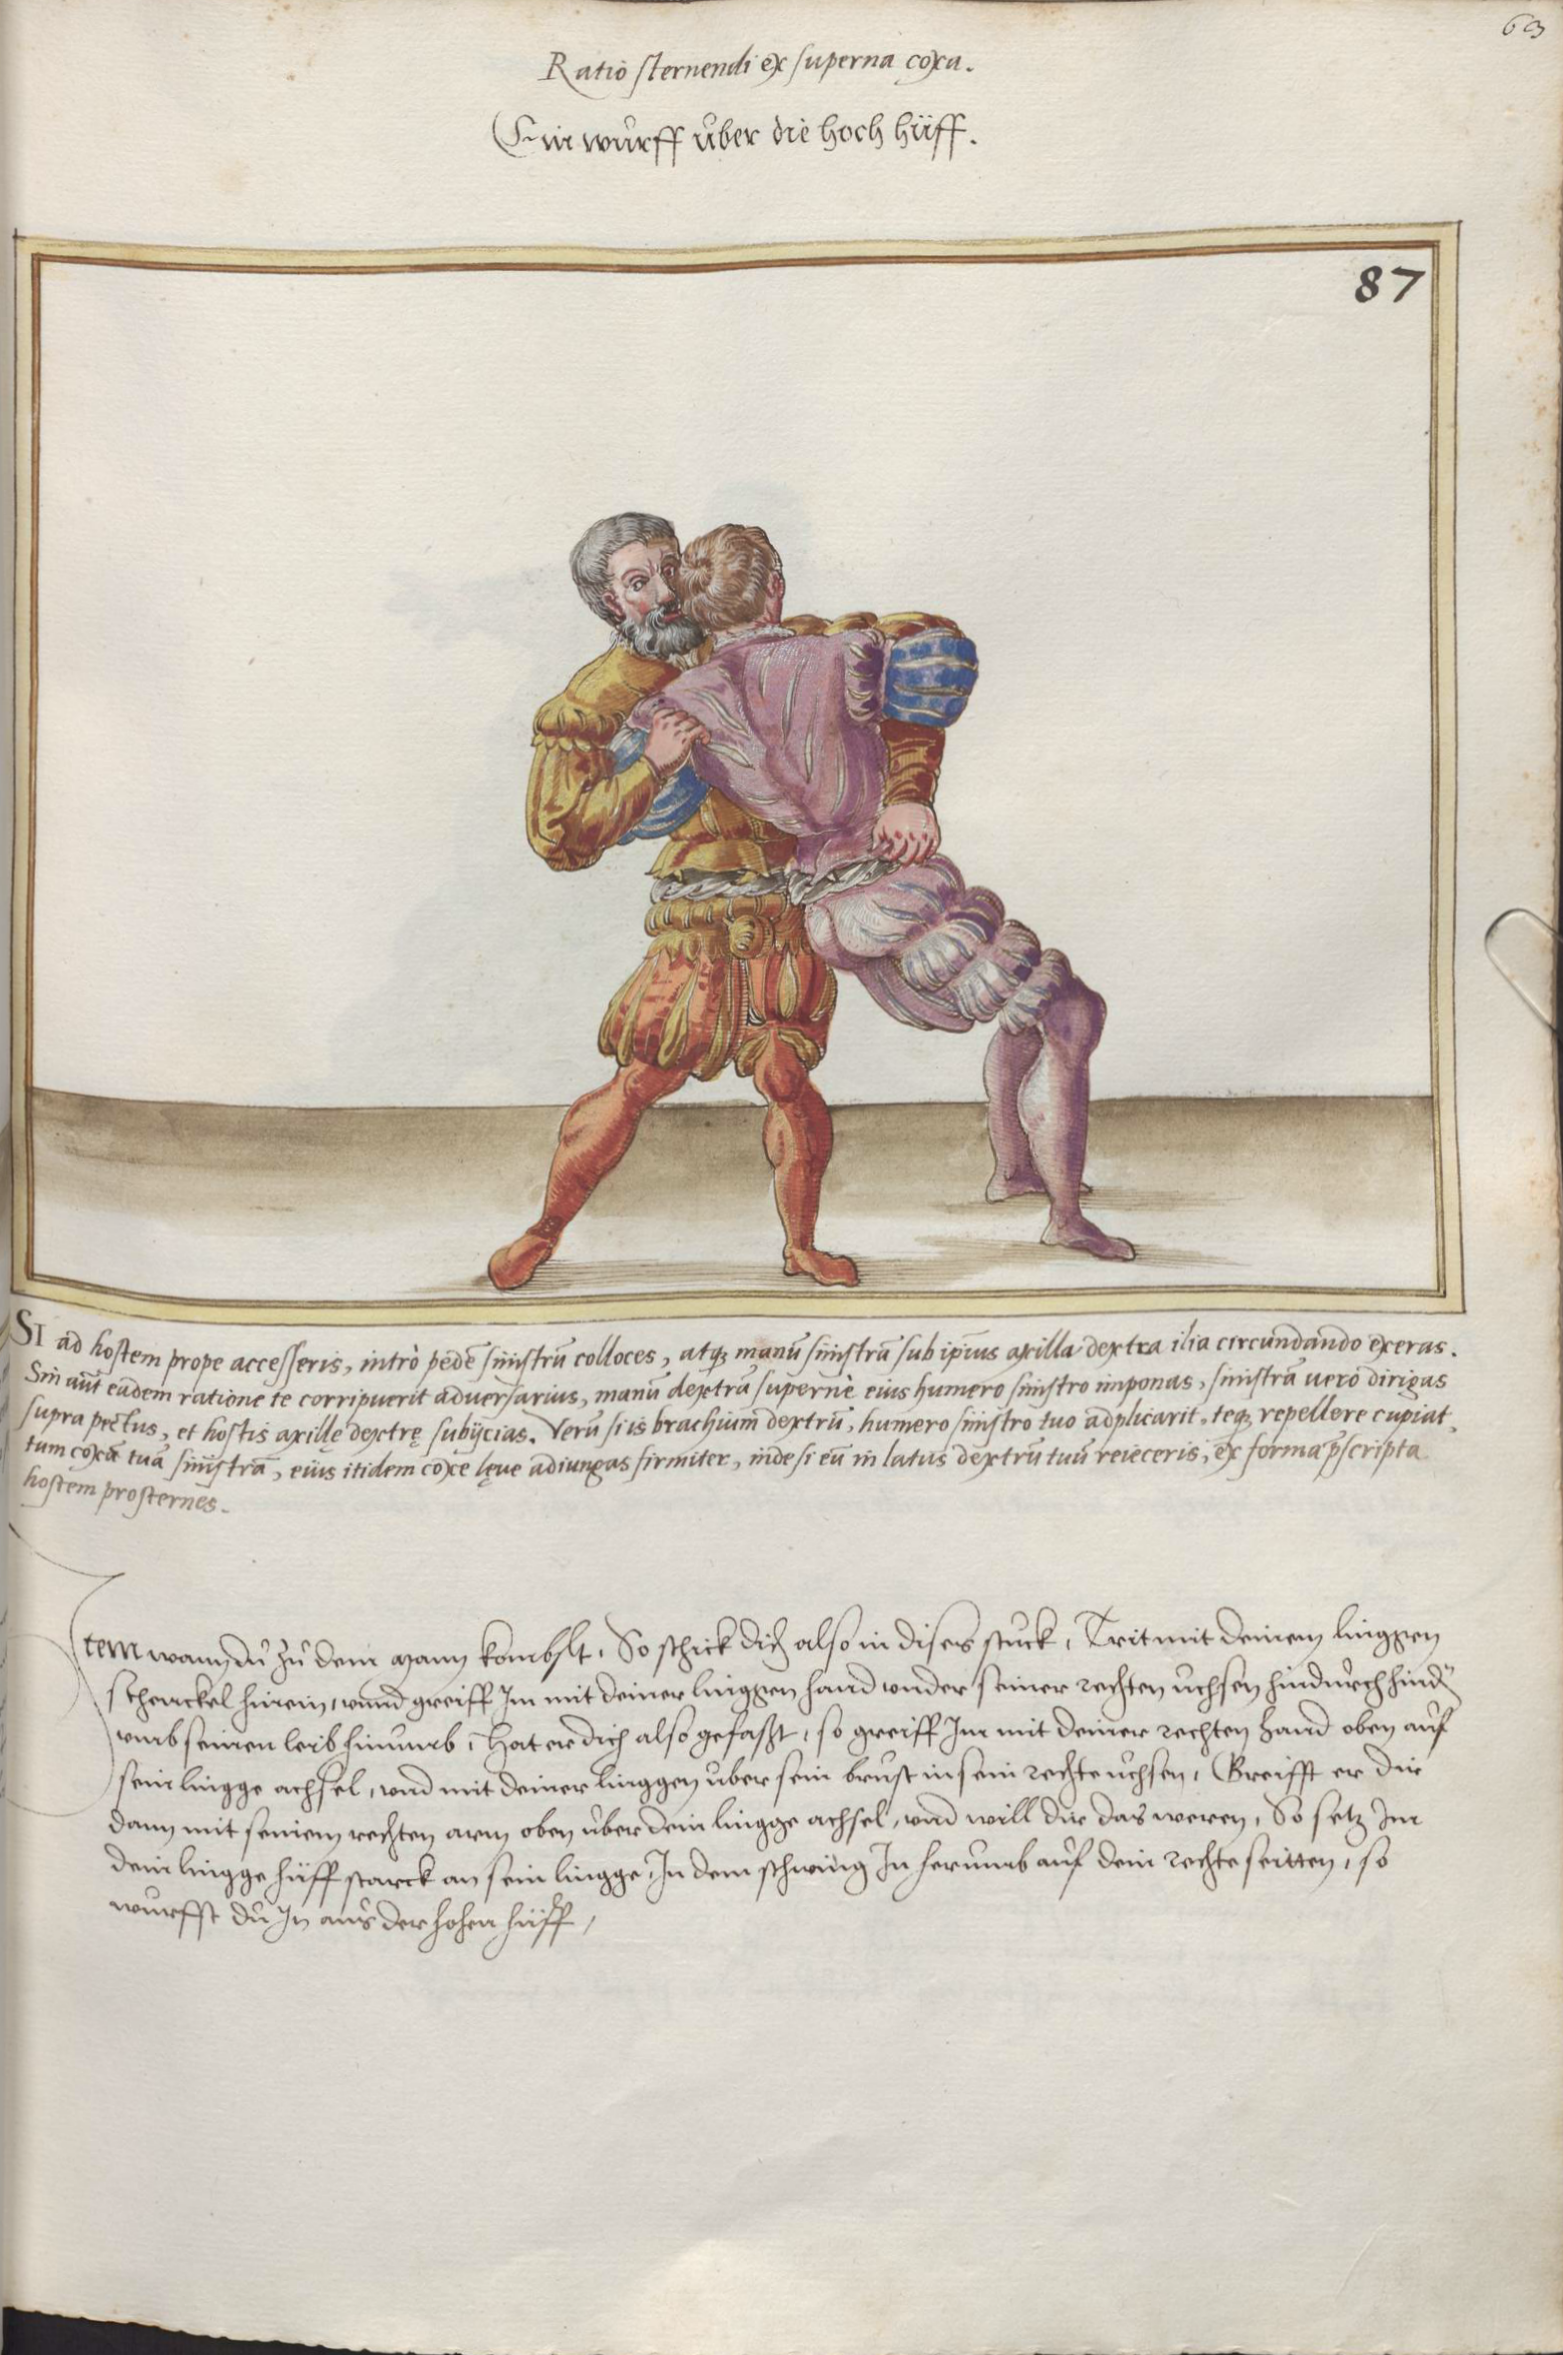 63
Ratio sternendi ex superna coxa.
Ein wurff uber die hoch hüff.
87
SI ad hostem prope accesseris, intrò pedē sinistrū colloces, atq; manū sinistrā sub ipsius axilla dextra ilia circundando exeras.
Sin aūt eadem ratione te corripuerit aduersarius, manū dextrā supernè eius humero sinistro imponas, sinistrā uerò dirigas
supra pectus, et hostis axillę dextrę subijcias. Verū si is brachium dextrū, humero sinistro tuo adplicarit, teq; repellere cupiat,
tum coxā tuā sinistrā, eius itidem coxe lęue adiungas firmiter, inde si eū in latus dextrū tuū reieceris, ex forma p̄scripta
hostem prosternes.
Item wann du zu dem mann kombst, So schick dich also in dises stuck, Trit mit deinem linggen
schenckel hinein, vnnd greiff Im mit deiner linggen hand vnder seiner rechten uchsen hindurch hinden
vmb seinen leib hinumb, Hat er dich also gefasst, so greiff Im mit deiner rechten hand oben auf
sein lingge achsel, vnd mit deiner linggen uber sein brust in sein rechte uchsen, Greifft er dir
dann mit seinem rechten arm oben uber dein lingge achsel, vnd will dir das weren, So setz Im
dein lingge hüff starck an sein lingge, In dem schwing In herumb auf dein rechte seitten, so
wurffst du In aus der hohen hüff,